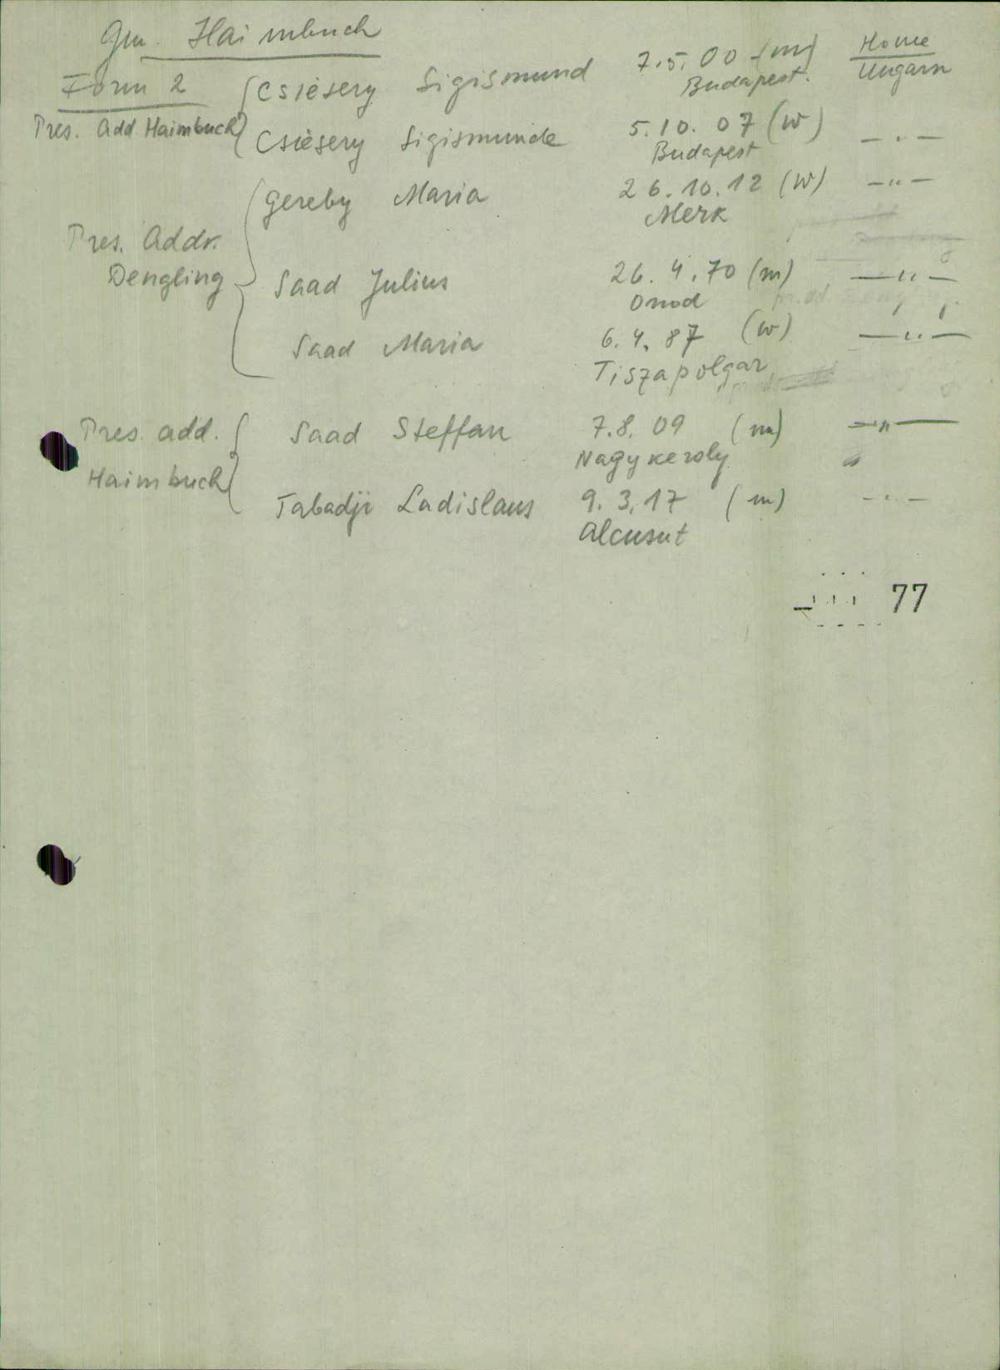 Gm. Haimbuch
Form 2
Home
Pres. Add Haimbuch
Csièsery Sigismund 7.5.00 (m) Ungarn
Budapest.
Csièsery Sigismunde 5.10.07 (w) - . -
Budapest
Gereby Maria 26.10.12 (W) - " -
Merk
Pres. Addr.
Dengling
Saad Julius 26.4.70 (m) - " -
Onod
Saad Maria 6.4.87 (w) - " -
Tiszapolgar
Pres. add.
Haimbuch
Saad Steffan 7.8.09 (m) - " -
Nagykeroly
Tabadji Ladislaus 9.3.17 (m) - . -
Alcusut
77